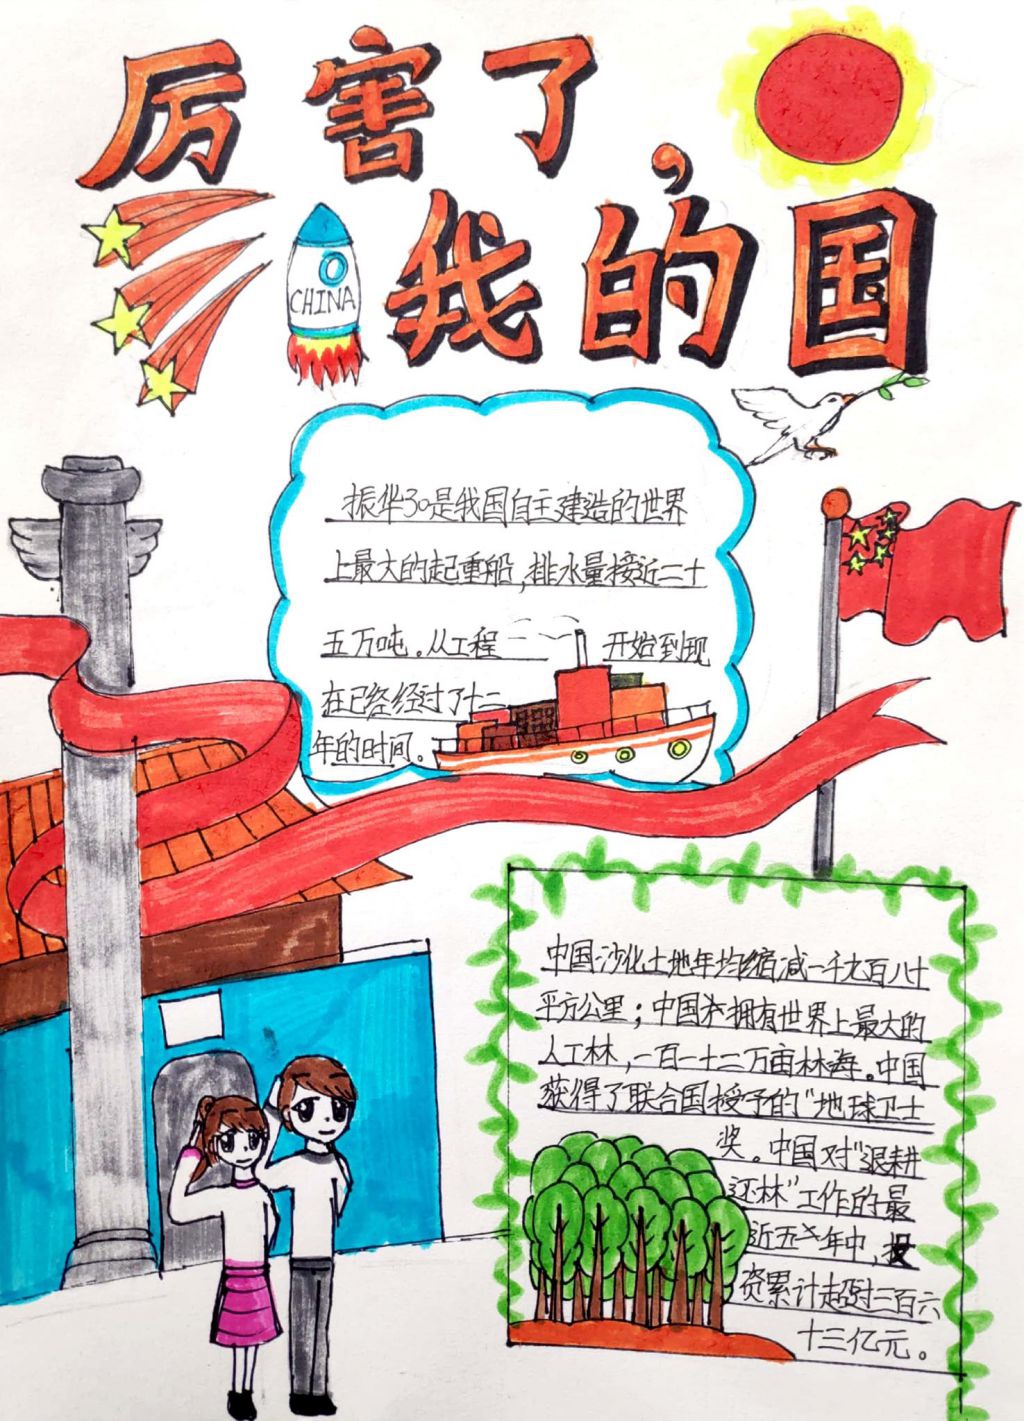 厉害了,
我的国
CHINA
振华30是我国自主建造的世界
上最大的起重船,排水量接近二十
五万吨。从工程开始到现
在已经经过了十二
年的时间。
中国沙化土地年均缩减一千九百八十
平方公里;中国还拥有世界上最大的
人工林,一百一十二万亩林海。中国
获得了联合国授予的"地球卫士
奖。中国对"退耕
还林"工作的最
近五年中,投
资累计超过三百六
十三亿元。